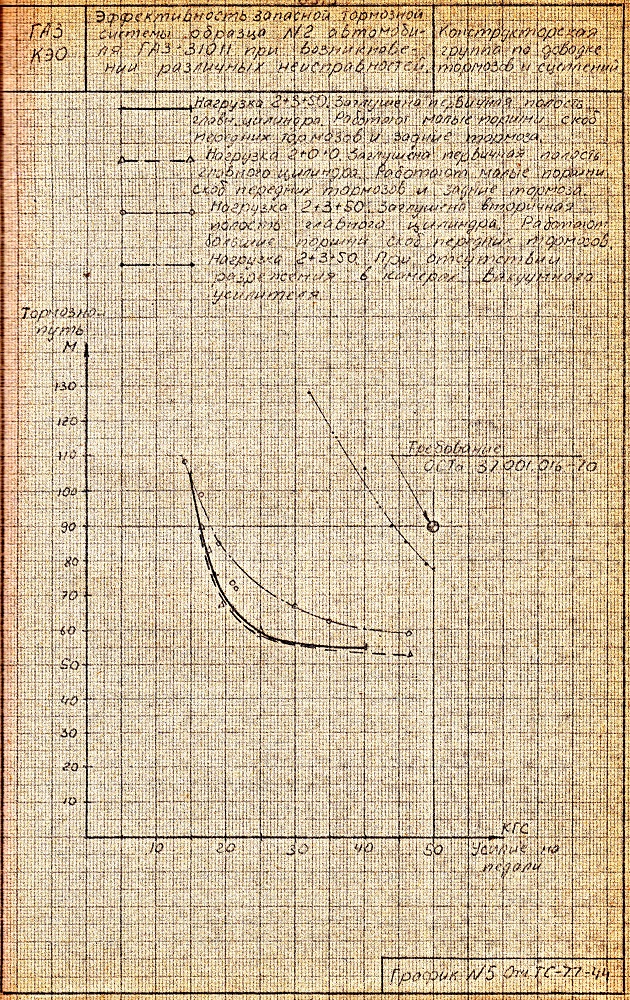 ГАЗ
КЭО
Эффективность запасной тормозной
системы образца №2 автомоби-
ля ГАЗ-31011 при возникнове-
нии различных неисправностей
Конструкторская
группа по доводке
тормозов и сцеплений
Нагрузка 2+3+50. Заглушена первичная полость
главн. цилиндра. Работают малые поршни скоб
передних тормозов и задние тормоза.
Нагрузка 2+0+0. Заглушена первичная полость
главного цилиндра. Работают малые поршни
скоб передних тормозов и задние тормоза.
Нагрузка 2+3+50. Заглушена вторичная
полость главного цилиндра. Работают
большие поршни скоб передних тормозов.
Нагрузка 2+3+50. При отсутствии
разрежения в камерах вакуумного
усилителя
Тормозной
путь
М
130
120
110
100
90
80
70
60
50
40
30
20
10
Требование
ОСТа 37.001.016-70
КГС
10 20 30 40 50 Усилие на
педали
График №5 Отч. ТС-77-44